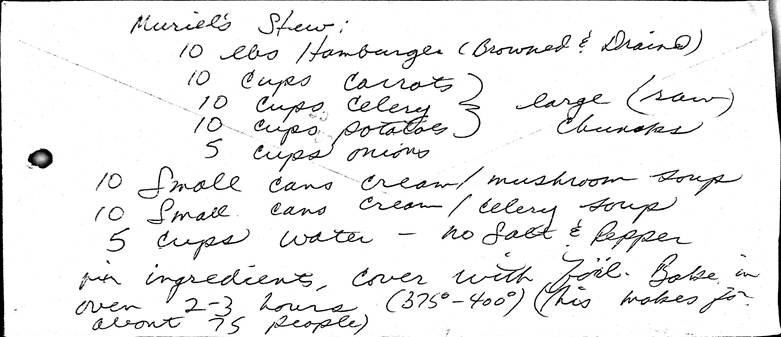 Muriel's Stew:
10 lbs Hamburger (Browned & Drained)
10 cups carrots
10 cups celery } large (raw)
10 cups potatoes } chunks
5 cups onions
10 Small cans cream/mushroom soup
10 Small cans cream/celery soup
5 cups water - no Salt & Pepper
mix ingredients, cover with foil. Bake in
oven 2-3 hours (375°-400°) (this makes for
about 75 people)